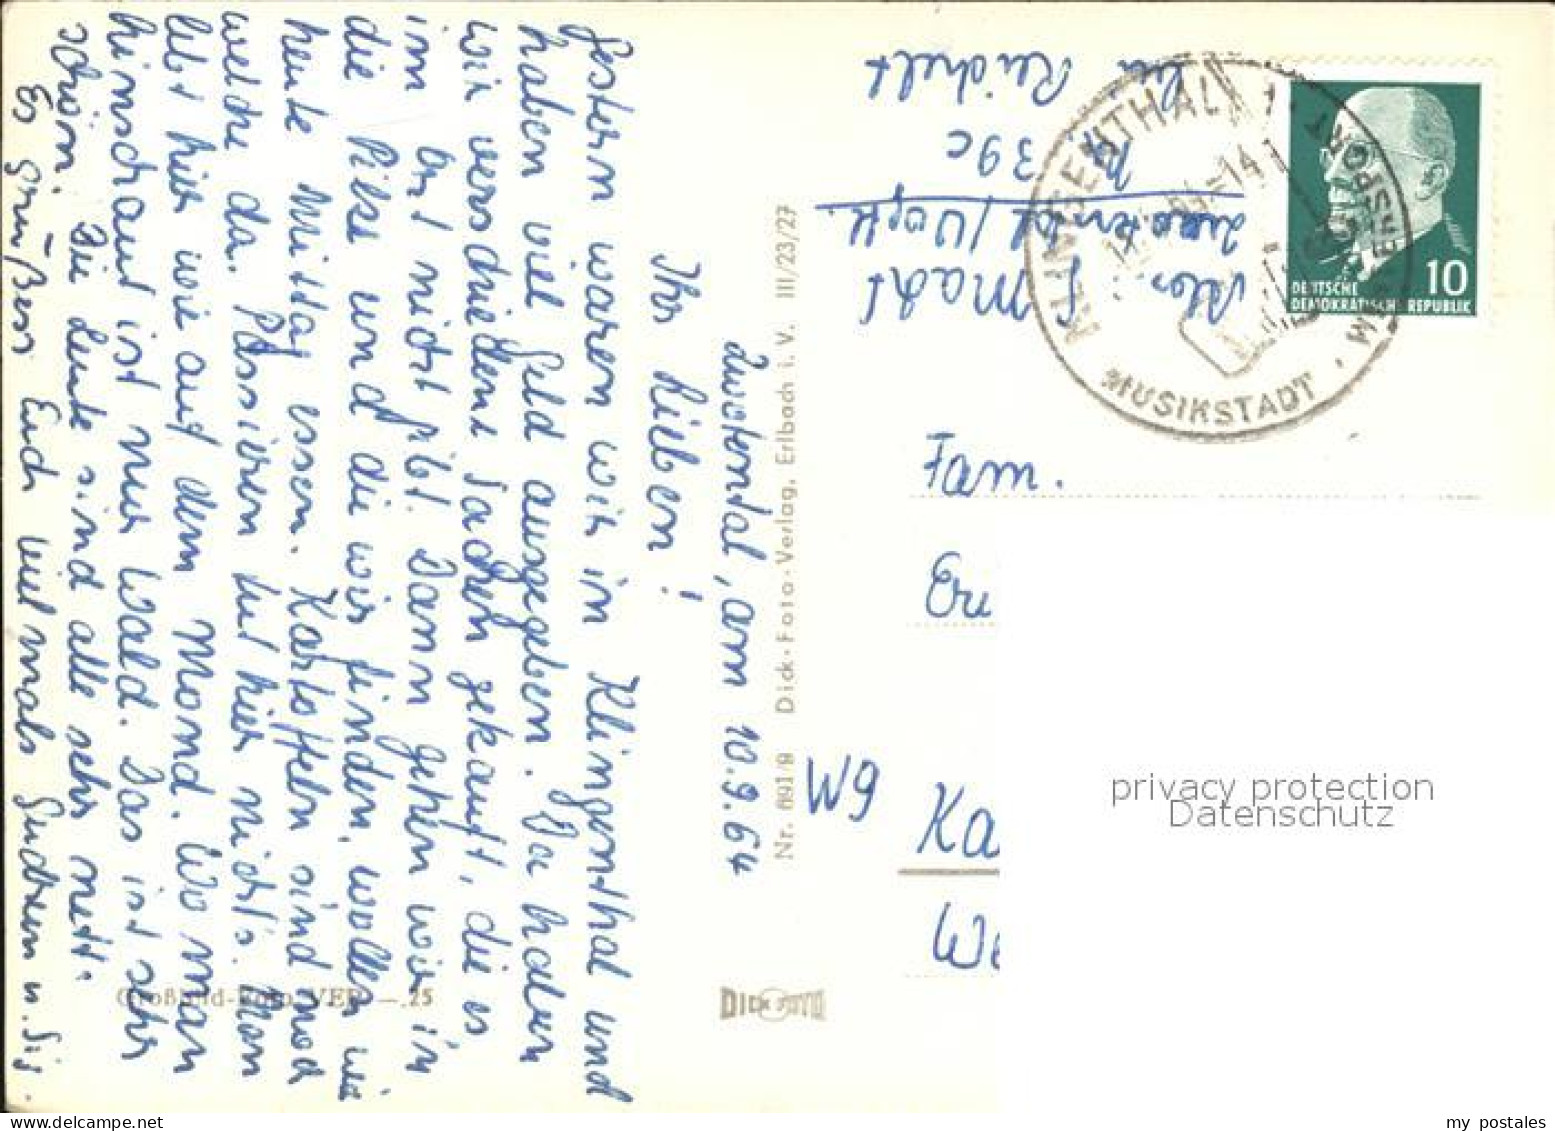 Zwotental, am 10.9.64
Ihr Lieben!
Gestern waren wir in Klingenthal und
haben viel Geld ausgegeben. Da haben
wir verschiedene Sachen gekauft, die es
im Ort nicht gibt. Dann gehen wir in
die Pilse und die wir finden, wollen wir
heute Mittag essen. Kartoffeln sind noch
welche da. Passieren tut hier nichts. Man
lebt hier wie auf dem Mond. Wo man
hinschaut ist nur Wald. Das ist sehr
schön. Die Leute sind alle sehr nett.
Es grüßen Euch vielmals Gudrun u.
Nr. 891/9 Dick-Foto-Verlag, Erlbach i. V. III/23/27
Großbild-Foto VEP —.25
DICK FOTO
Reichelt
39c
Zwotental/Vogtl.
KLINGENTHAL
WINTERSPORT
MUSIKSTADT
10
DEUTSCHE
DEMOKRATISCHE REPUBLIK
Fam.
Eru
W9
Ka
We
privacy protection
Datenschutz
my postales